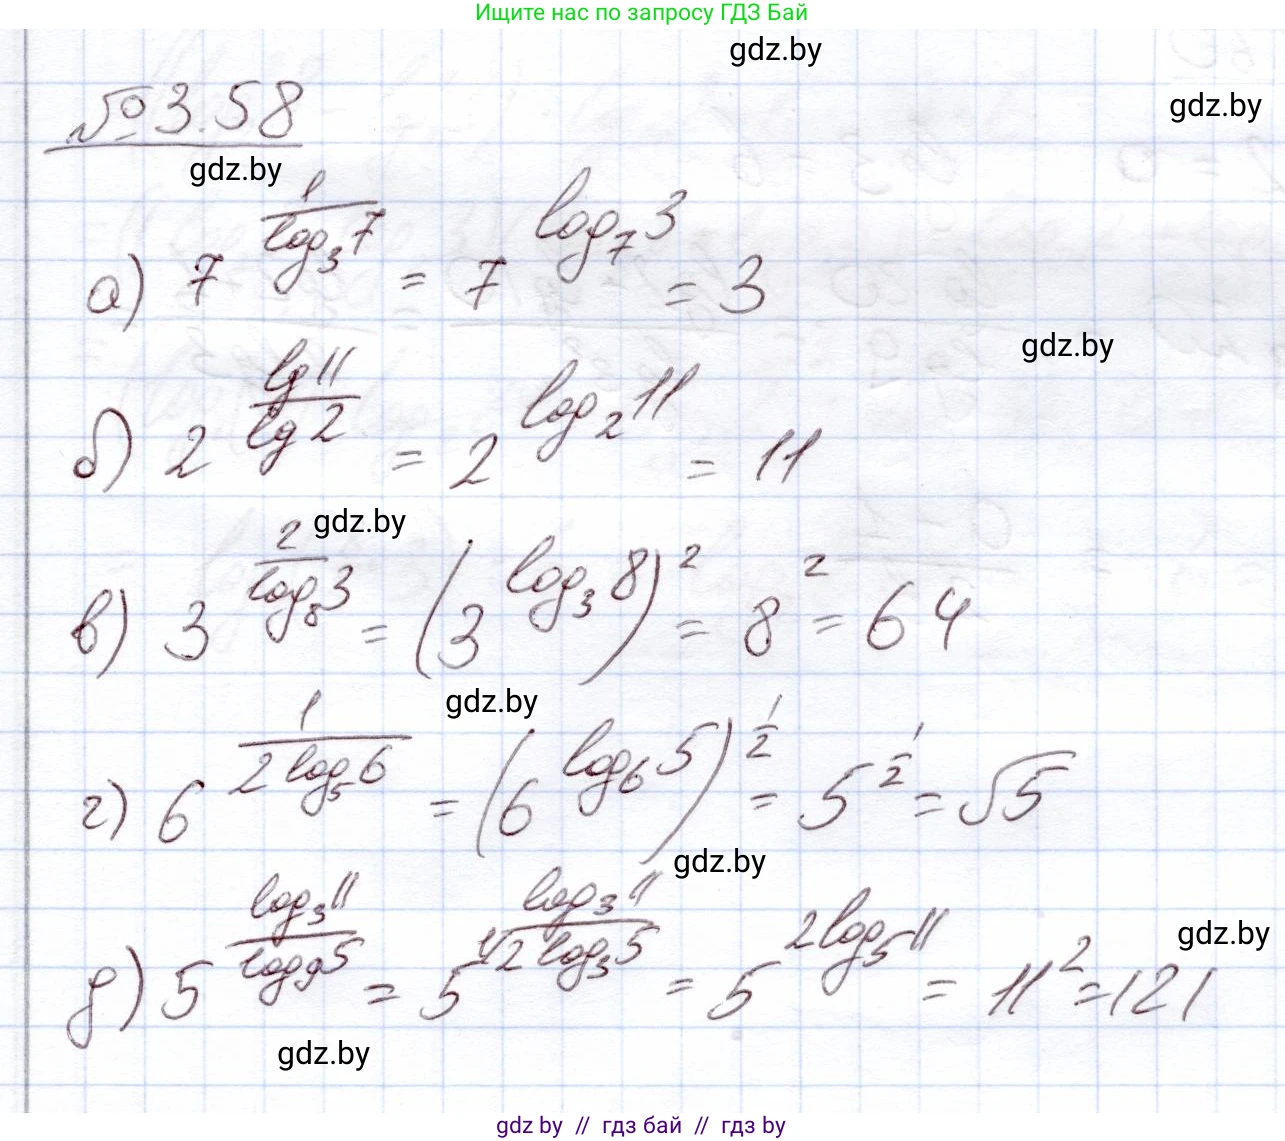 Ищите нас по запросу ГДЗ Бай
gdz.by
gdz.by
№ 3.58
gdz.by
а) 7^(1/log₃7) = 7^(log₇3) = 3
gdz.by
б) 2^(lg11/lg2) = 2^(log₂11) = 11
gdz.by
в) 3^(2/log₈3) = (3^(log₃8))² = 8² = 64
gdz.by
г) 6^(1/(2log₅6)) = (6^(log₆5))^(1/2) = 5^(1/2) = √5
gdz.by
д) 5^(log₃11/log₉5) = 5^(log₃11/(1/2 log₃5)) = 5^(2log₅11) = 11² = 121
gdz.by
gdz.by
gdz by // гдз бай // гдз by